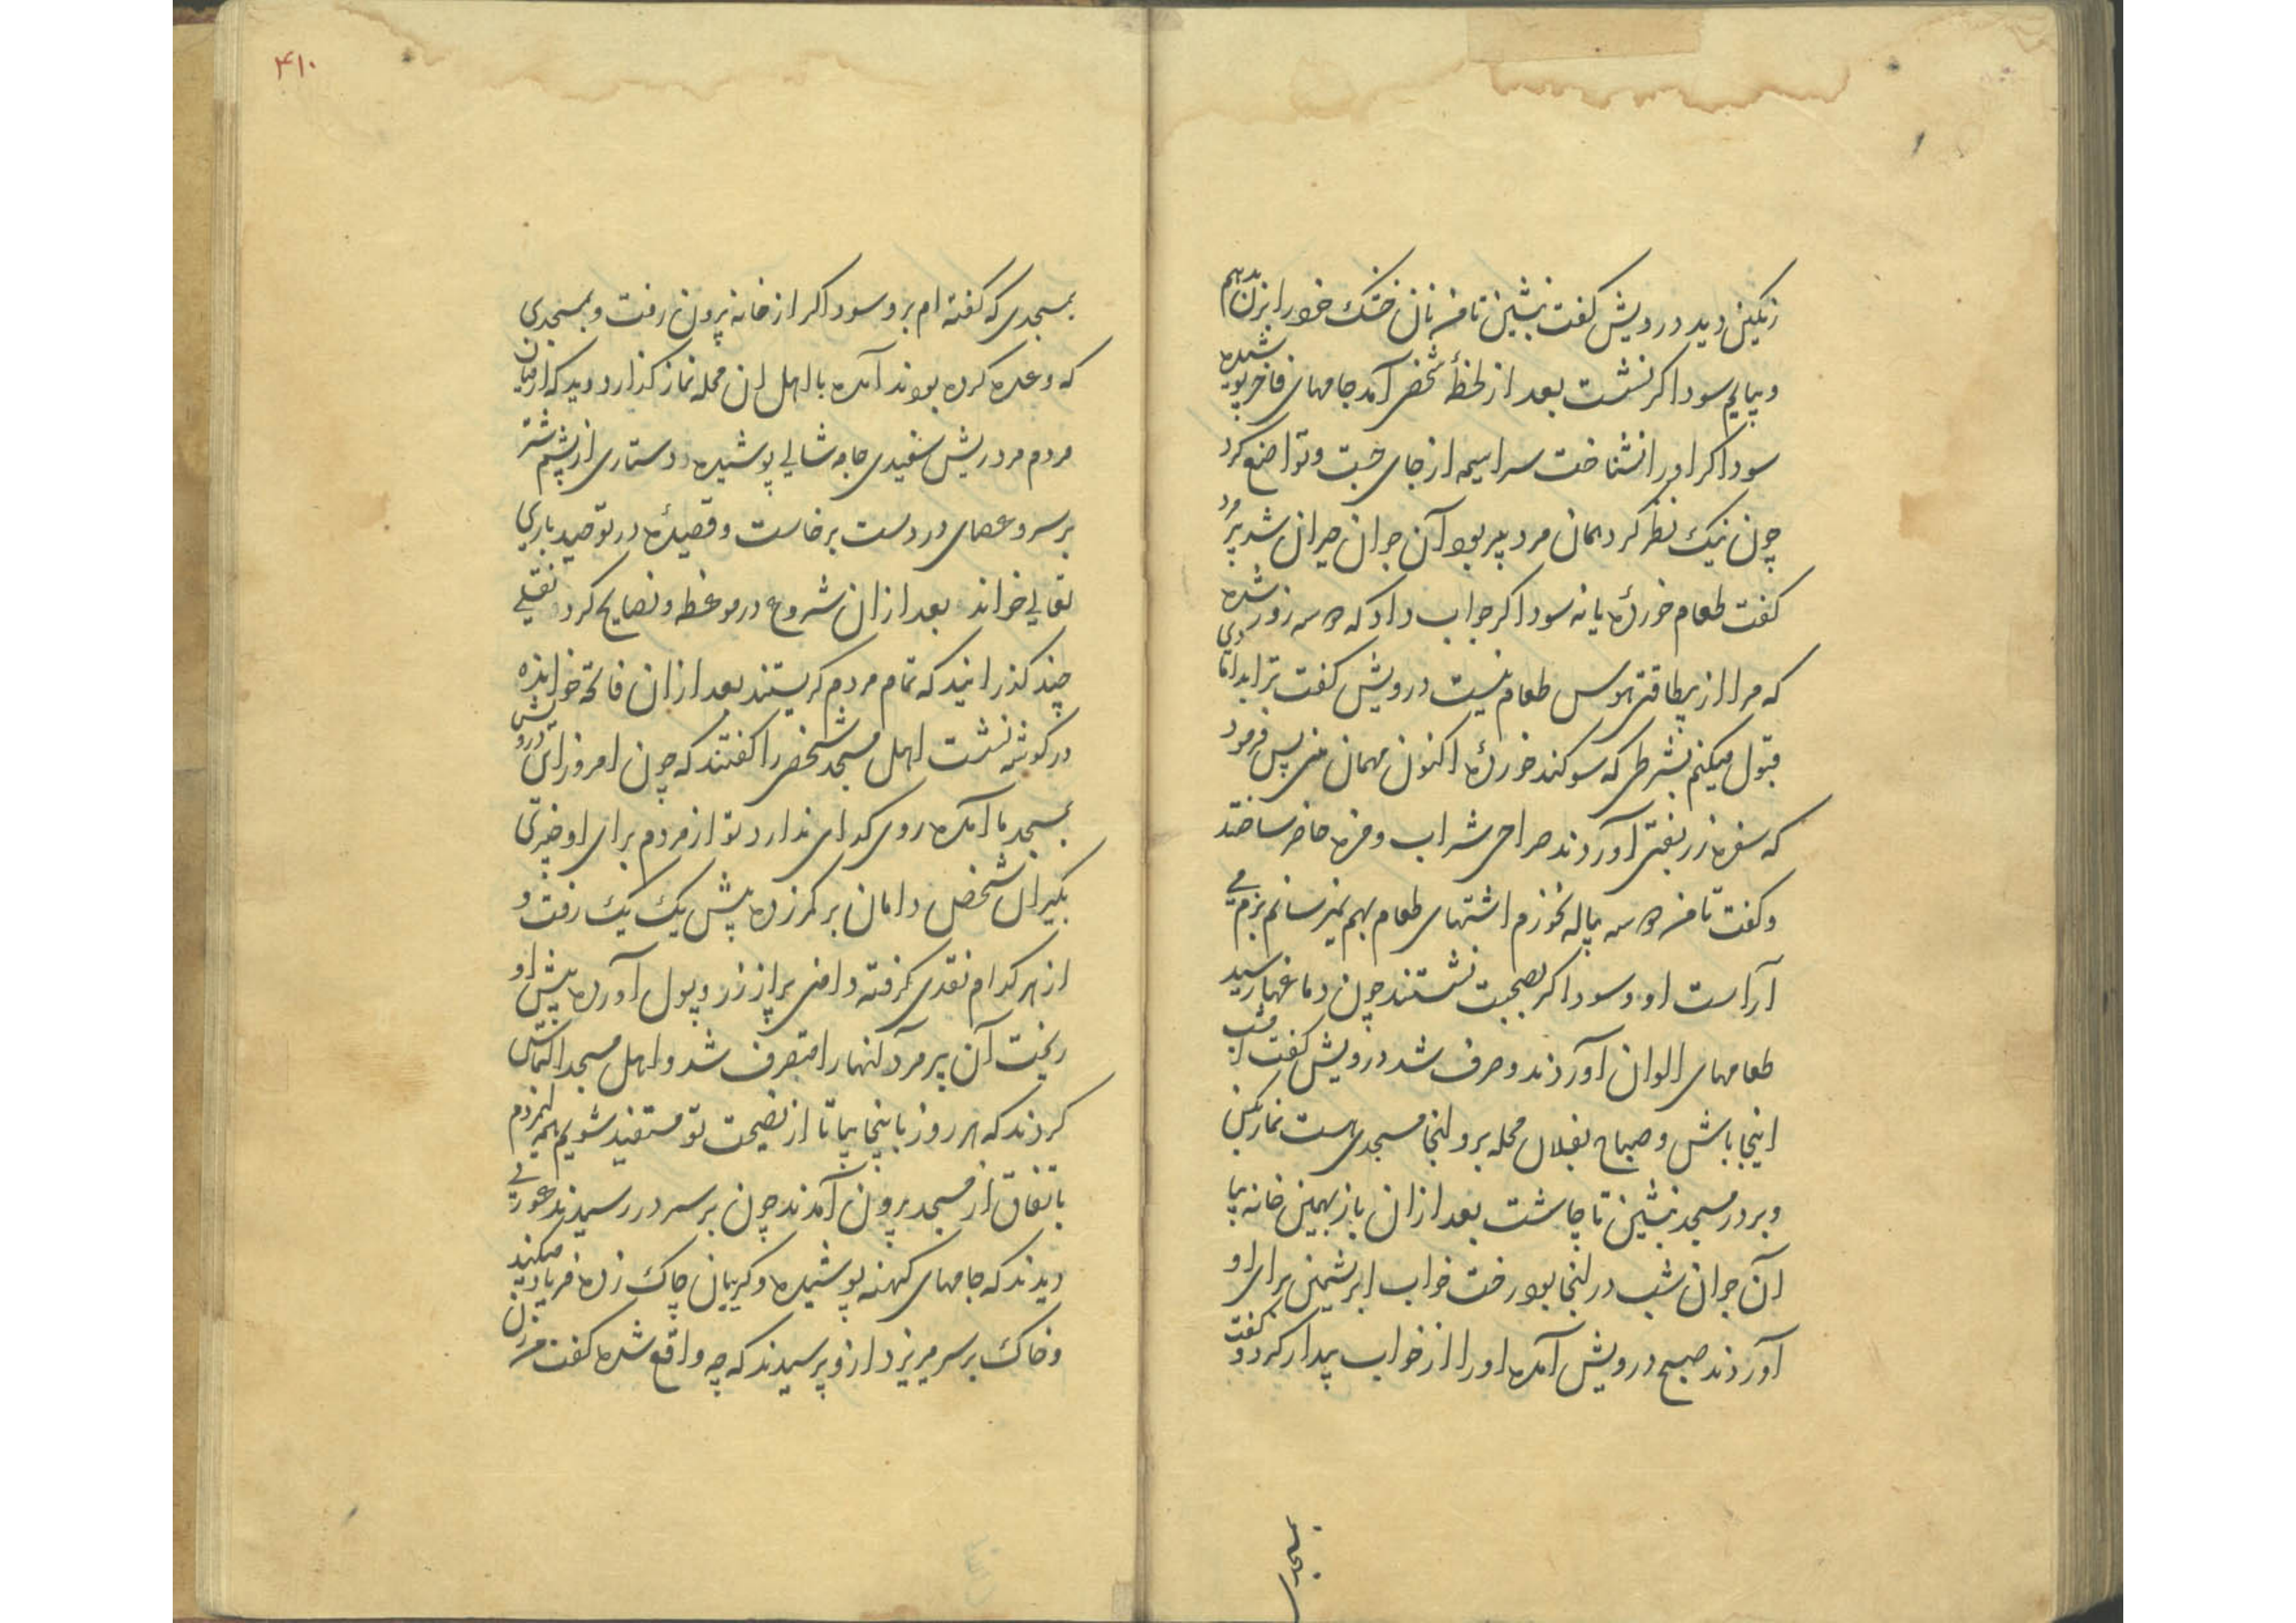 رنکین دید درویش کفت بنشین تا من نان خشک خود را بزنان بدهم
و بیایم سوداکر نشست بعد از لحظهٔ شخصی آمد جامهای فاخر پوشیده
سوداکر او را نشناخت سراسیمه از جای جست و تواضع کرد
چون نیک نظر کرد همان مرد پیر بود آن جوان حیران شد پیر مرد
کفت طعام خوردهٔ یا نه سوداکر جواب داد که دو سه روز شده
که مرا از بیطاقتی هوس طعام نیست درویش کفت ترا بدامادی
قبول میکنم بشرطی که سوکند خوردهٔ اکنون مهمان منی پس فرمود
که سفره زربفتی آوردند صراحی شراب و مزه حاضر ساختند
و کفت تا من دو سه پیاله نخورم اشتهای طعام بهم نمیرسانم بزم می
آراست او و سوداکر بصحبت نشستند چون دماغها رسید
طعامهای الوان آوردند و صرف شد درویش کفت امشب
اینجا باش و صباح بفلان محله برو انجا مسجدی هست نماز بکن
و بر در مسجد بنشین تا چاشت بعد ازان باز بهمین خانه بیا
آن جوان شب در انجا بود رخت خواب ابریشمین برای او
آوردند صبح درویش آمده او را از خواب بیدار کرد و کفت
بمسجدی
۴۱۰
بمسجدی که کفته ام برو سوداکر از خانه بیرون رفت و بمسجدی
که وعده کرده بودند آمده با اهل ان محله نماز کذارد و دید که از میان
مردم مرد ریش سفیدی جامه شالی پوشیده و دستاری از پشم شتر
بر سر و عصای در دست برخاست و قصیدهٔ در توحید باری
تعالی خواند بعد ازان شروع در موعظه و نصایح کرد و نقلی
چند کذرانید که تمام مردم کریستند بعد ازان فاتحه خوانده
در کوشه نشست اهل مسجد شخصی را کفتند که چون امروز این درویش
بمسجد ما آمده روی کدای ندارد تو از مردم برای او چیزی
بکیر ان شخص دامان بر کمر زده پیش یک یک رفت و
از هر کدام نقدی کرفته دامنی پر از زر و پول آورده پیش او
ریخت آن پیر مرد آنها را متصرف شد و اهل مسجد التماس
کردند که هر روز باینجا بیا تا از نصیحت تو مستفید شویم همه مردم
باتفاق از مسجد بیرون آمدند چون بر سر در رسیدند عورتی
دیدند که جامهای کهنه پوشیده و کریبان چاک زده فریاد میکند
و خاک بر سر میریزد ازو پرسیدند که چه واقع شده کفت من زن